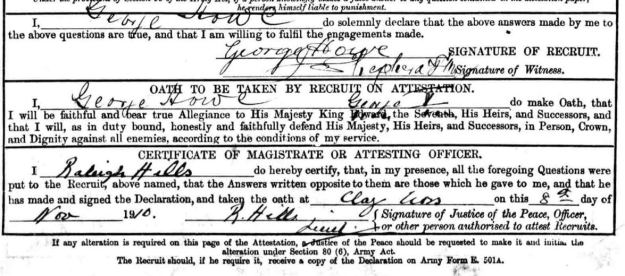 he renders himself liable to punishment.
I, George Howe do solemnly declare that the above answers made by me to
the above questions are true, and that I am willing to fulfil the engagements made.
George Howe SIGNATURE OF RECRUIT.
Signature of Witness.
OATH TO BE TAKEN BY RECRUIT ON ATTESTATION.
I, George Howe do make Oath, that
George V
I will be faithful and bear true Allegiance to His Majesty King Edward, the Seventh, His Heirs, and Successors, and
that I will, as in duty bound, honestly and faithfully defend His Majesty, His Heirs, and Successors, in Person, Crown,
and Dignity against all enemies, according to the conditions of my service.
CERTIFICATE OF MAGISTRATE OR ATTESTING OFFICER.
I Raleigh Hills do hereby certify, that, in my presence, all the foregoing Questions were
put to the Recruit, above named, that the Answers written opposite to them are those which he gave to me, and that he
has made and signed the Declaration, and taken the oath at Clay Cross on this 8th day of
Nov 1910. R. Hills Signature of Justice of the Peace, Officer,
Lieut or other person authorised to attest Recruits.
If any alteration is required on this page of the Attestation, a Justice of the Peace should be requested to make it and initial the
alteration under Section 80 (6), Army Act.
The Recruit should, if he require it, receive a copy of the Declaration on Army Form E. 501A.